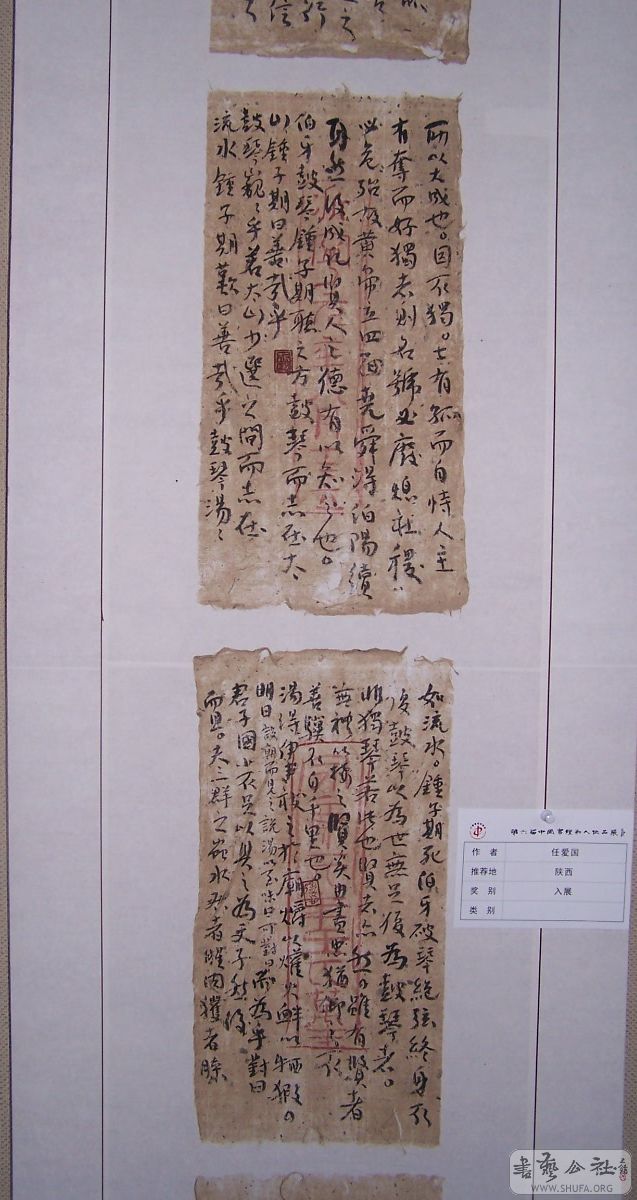 所以大成也。固不獨。士有孤而自恃人主
有奮而好獨者則名號必廢熄社稷
必危殆故黄帝立四面堯舜得伯陽續
耳然後成凡賢人之德有以知之也。
伯牙鼓琴鍾子期聽之方鼓琴而志在太
山鍾子期曰善哉乎
鼓琴巍〻乎若太山少選之間而志在
流水鍾子期歎曰善哉乎鼓琴湯〻
如流水。鍾子期死伯牙破琴絕弦終身不
復鼓琴以為世無足復為鼓琴者。
非獨琴若此也賢者亦然。雖有賢者
無禮以接之賢奚由盡忠猶御之不
善驥不自千里也。
湯得伊尹祓之於廟爝以爟火釁以牺猳。
明日設朝而見之說湯以至味曰可對而為乎對曰
君子國小不足以具之為天子然後
可具。夫三群之蟲水居者腥肉玃者臊
第六届中国书坛新人作品展
作 者 任爱国
推荐地 陕西
奖 别 入展
类 别
書藝公社
WWW.SHUFA.ORG